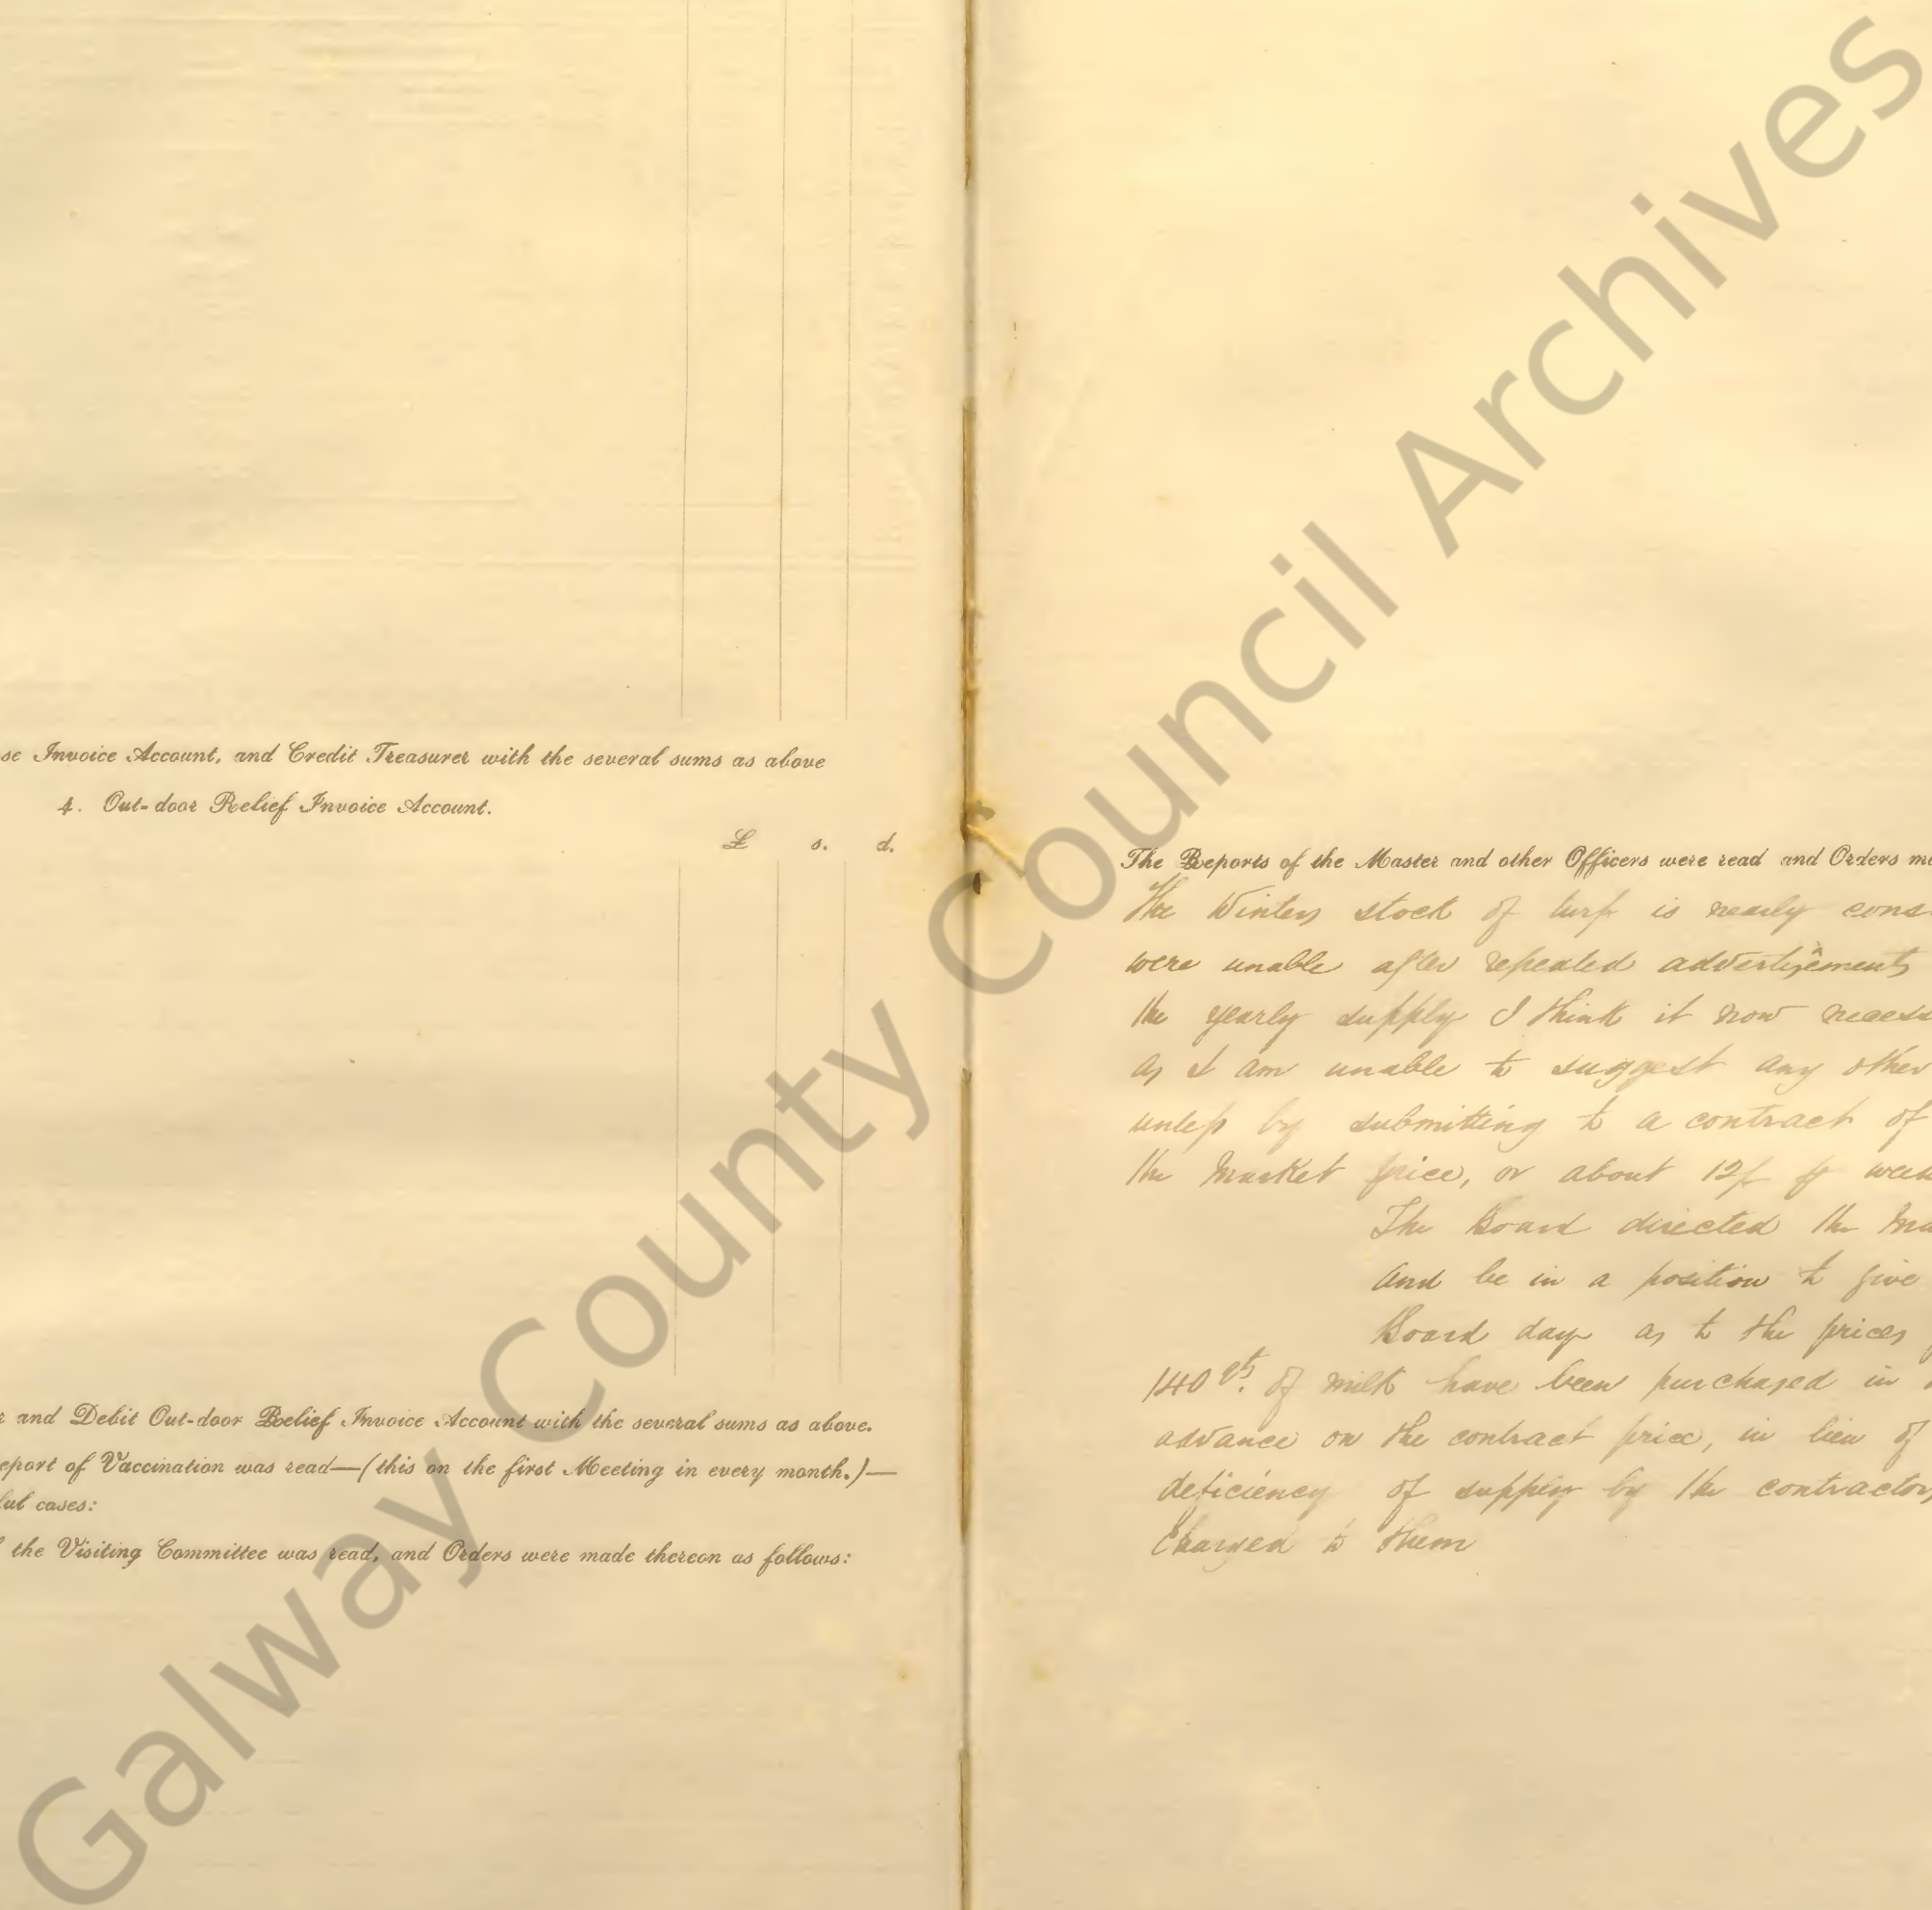 se Invoice Account, and Credit Treasurer with the several sums as above
4. Out-door Relief Invoice Account.
£ s. d.
r and Debit Out-door Relief Invoice Account with the several sums as above.
eport of Vaccination was read—(this on the first Meeting in every month.)—
ful cases:
the Visiting Committee was read, and Orders were made thereon as follows:
The Reports of the Master and other Officers were read and Orders m
The Winters stock of turf is nearly cons
were unable after repeated advertisements
the yearly supply I think it now necess
as I am unable to suggest any other
unless by submitting to a contract of
the Market price, or about 12/ week
The Board directed the Ma
and be in a position to give
Board day as to the prices
140 qts. of milk have been purchased in
advance on the contract price, in lieu of
deficiency of supply by the contractor,
Charged to them
Galway County Council Archives